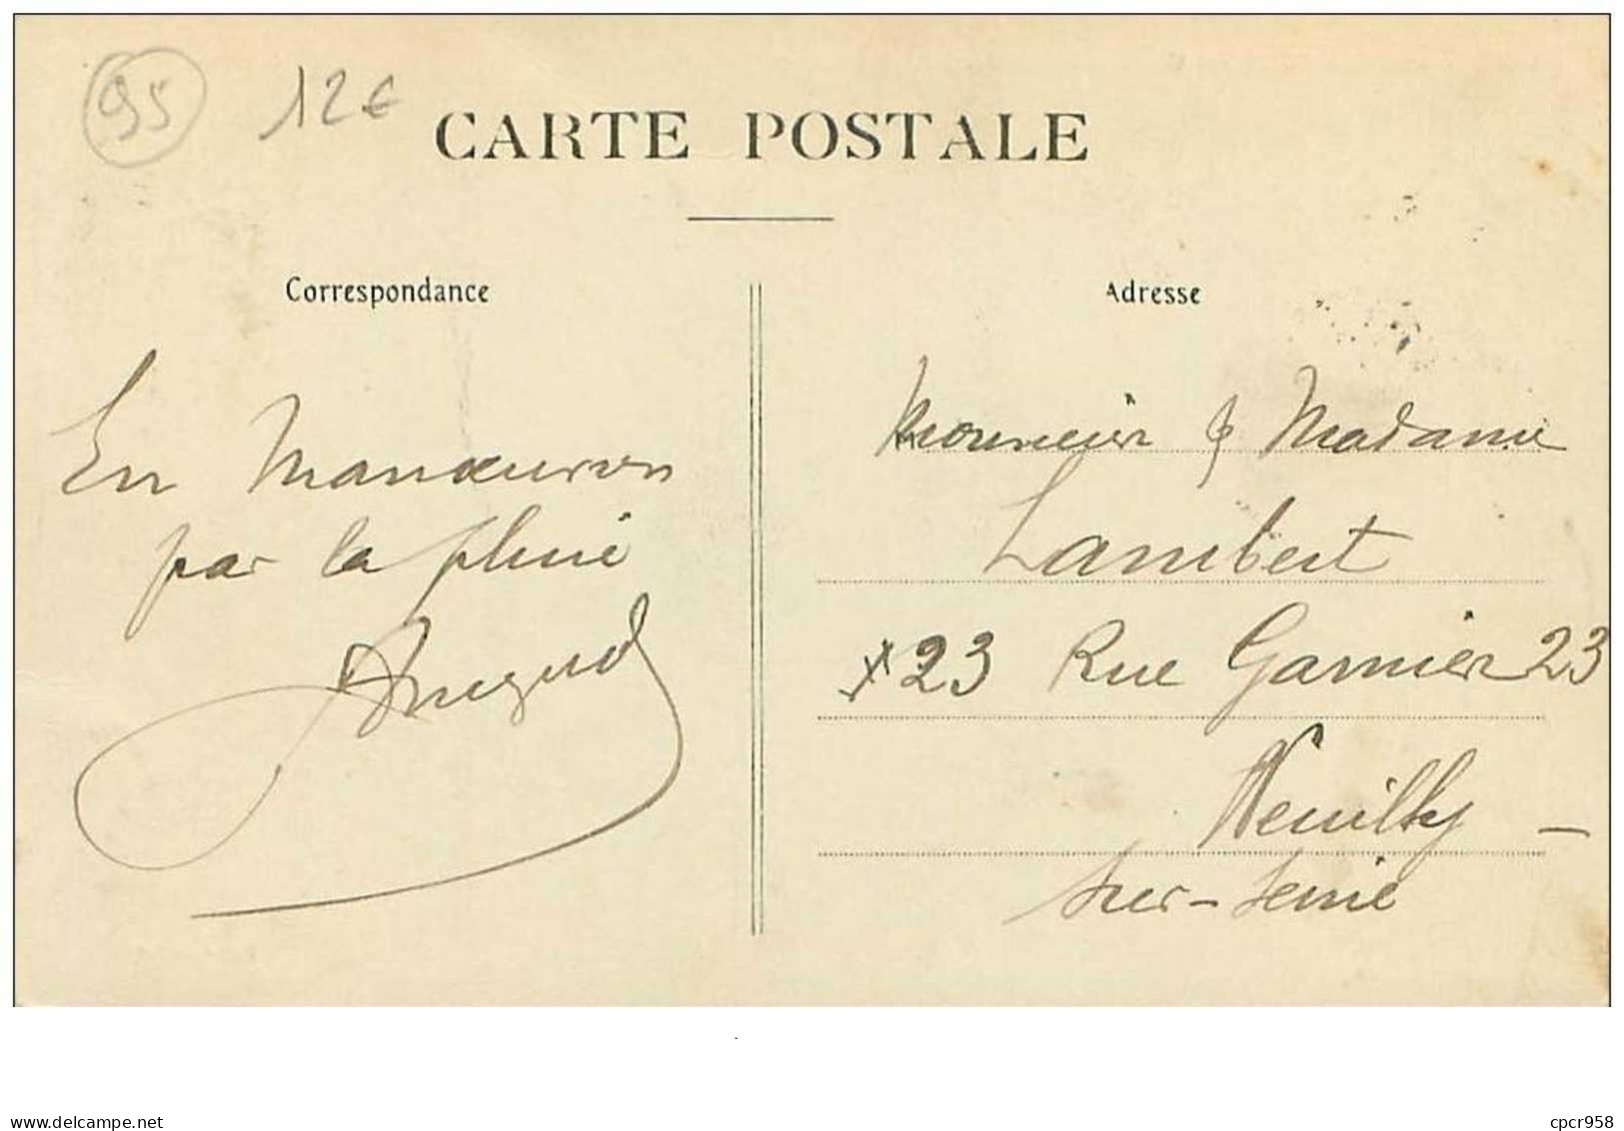 95 12€
CARTE POSTALE
Correspondance
Adresse
En Manœuvres
par la pluie
Monsieur & Madame
Lambert
23 Rue Garnier 23
Neuilly -
sur-Seine
delcampe.net
cpcr958